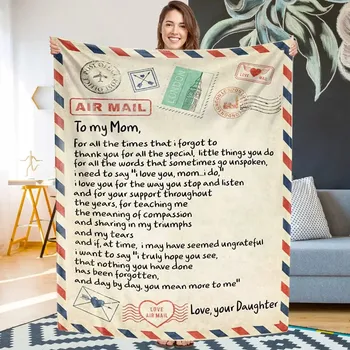 LONDON
AIR MAIL
To my Mom,
For all the times that i forgot to
thank you for all the special, little things you do
for all the words that sometimes go unspoken,
i need to say "i love you, mom...i do,"
i love you for the way you stop and listen
and for your support throughout
the years, for teaching me
the meaning of compassion
and sharing in my triumphs
and my tears
and if, at time, i may have seemed ungrateful
i want to say "i truly hope you see,
that nothing you have done
has been forgotten,
and day by day, you mean more to me"
Love, your Daughter
LOVE
AIR MAIL